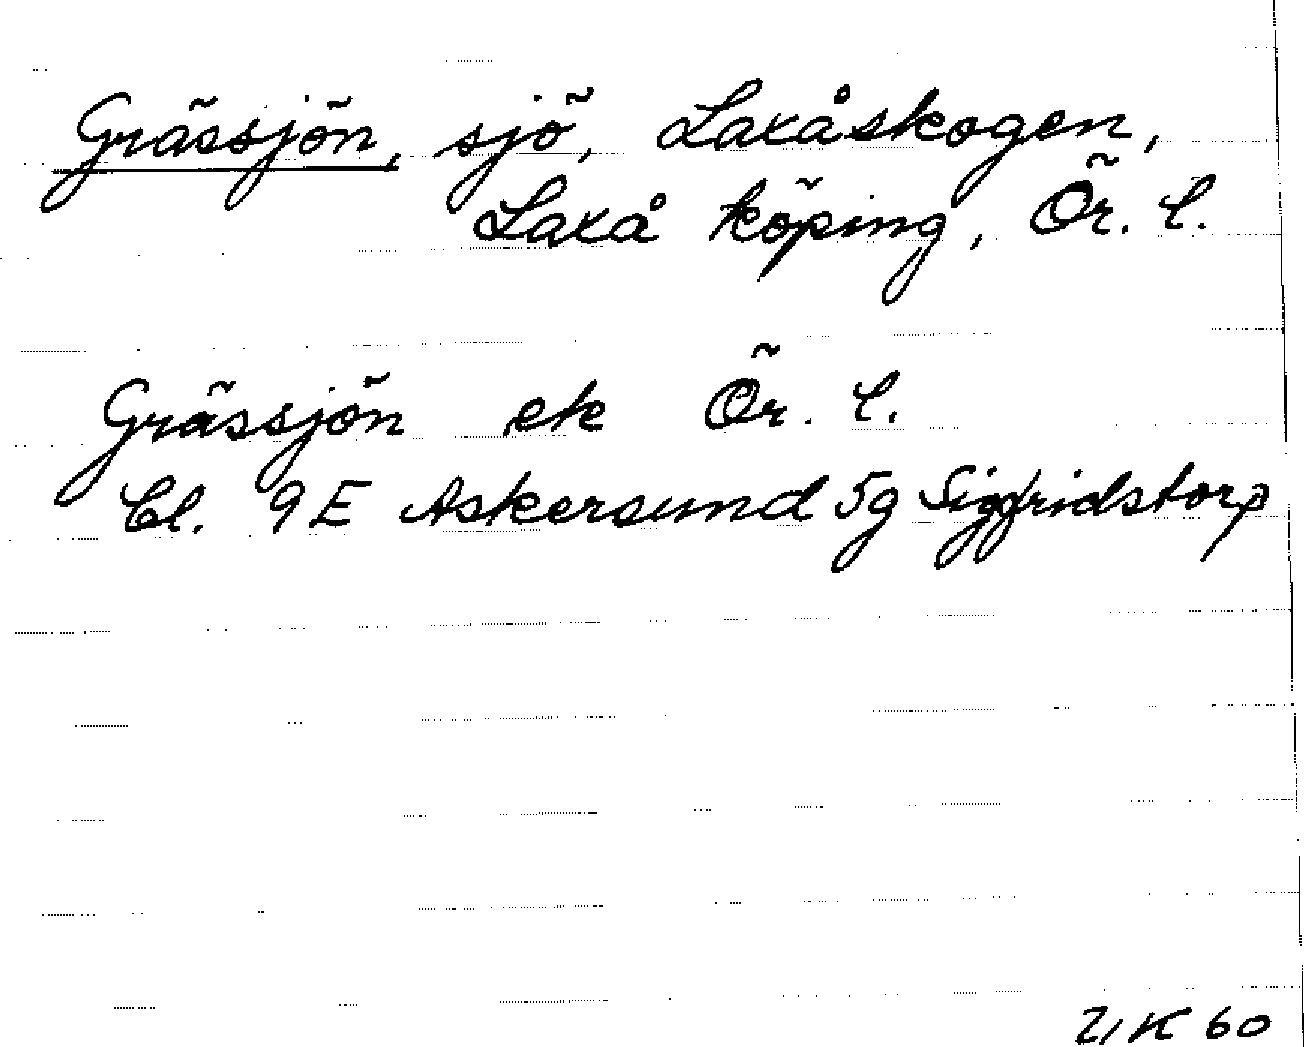 Grässjön, sjö, Laxåskogen,
Laxå köping, Ör. l.
Grässjön ek Ör. l.
Bl. 9E Askersund 5g Sigfridstorp
K 60